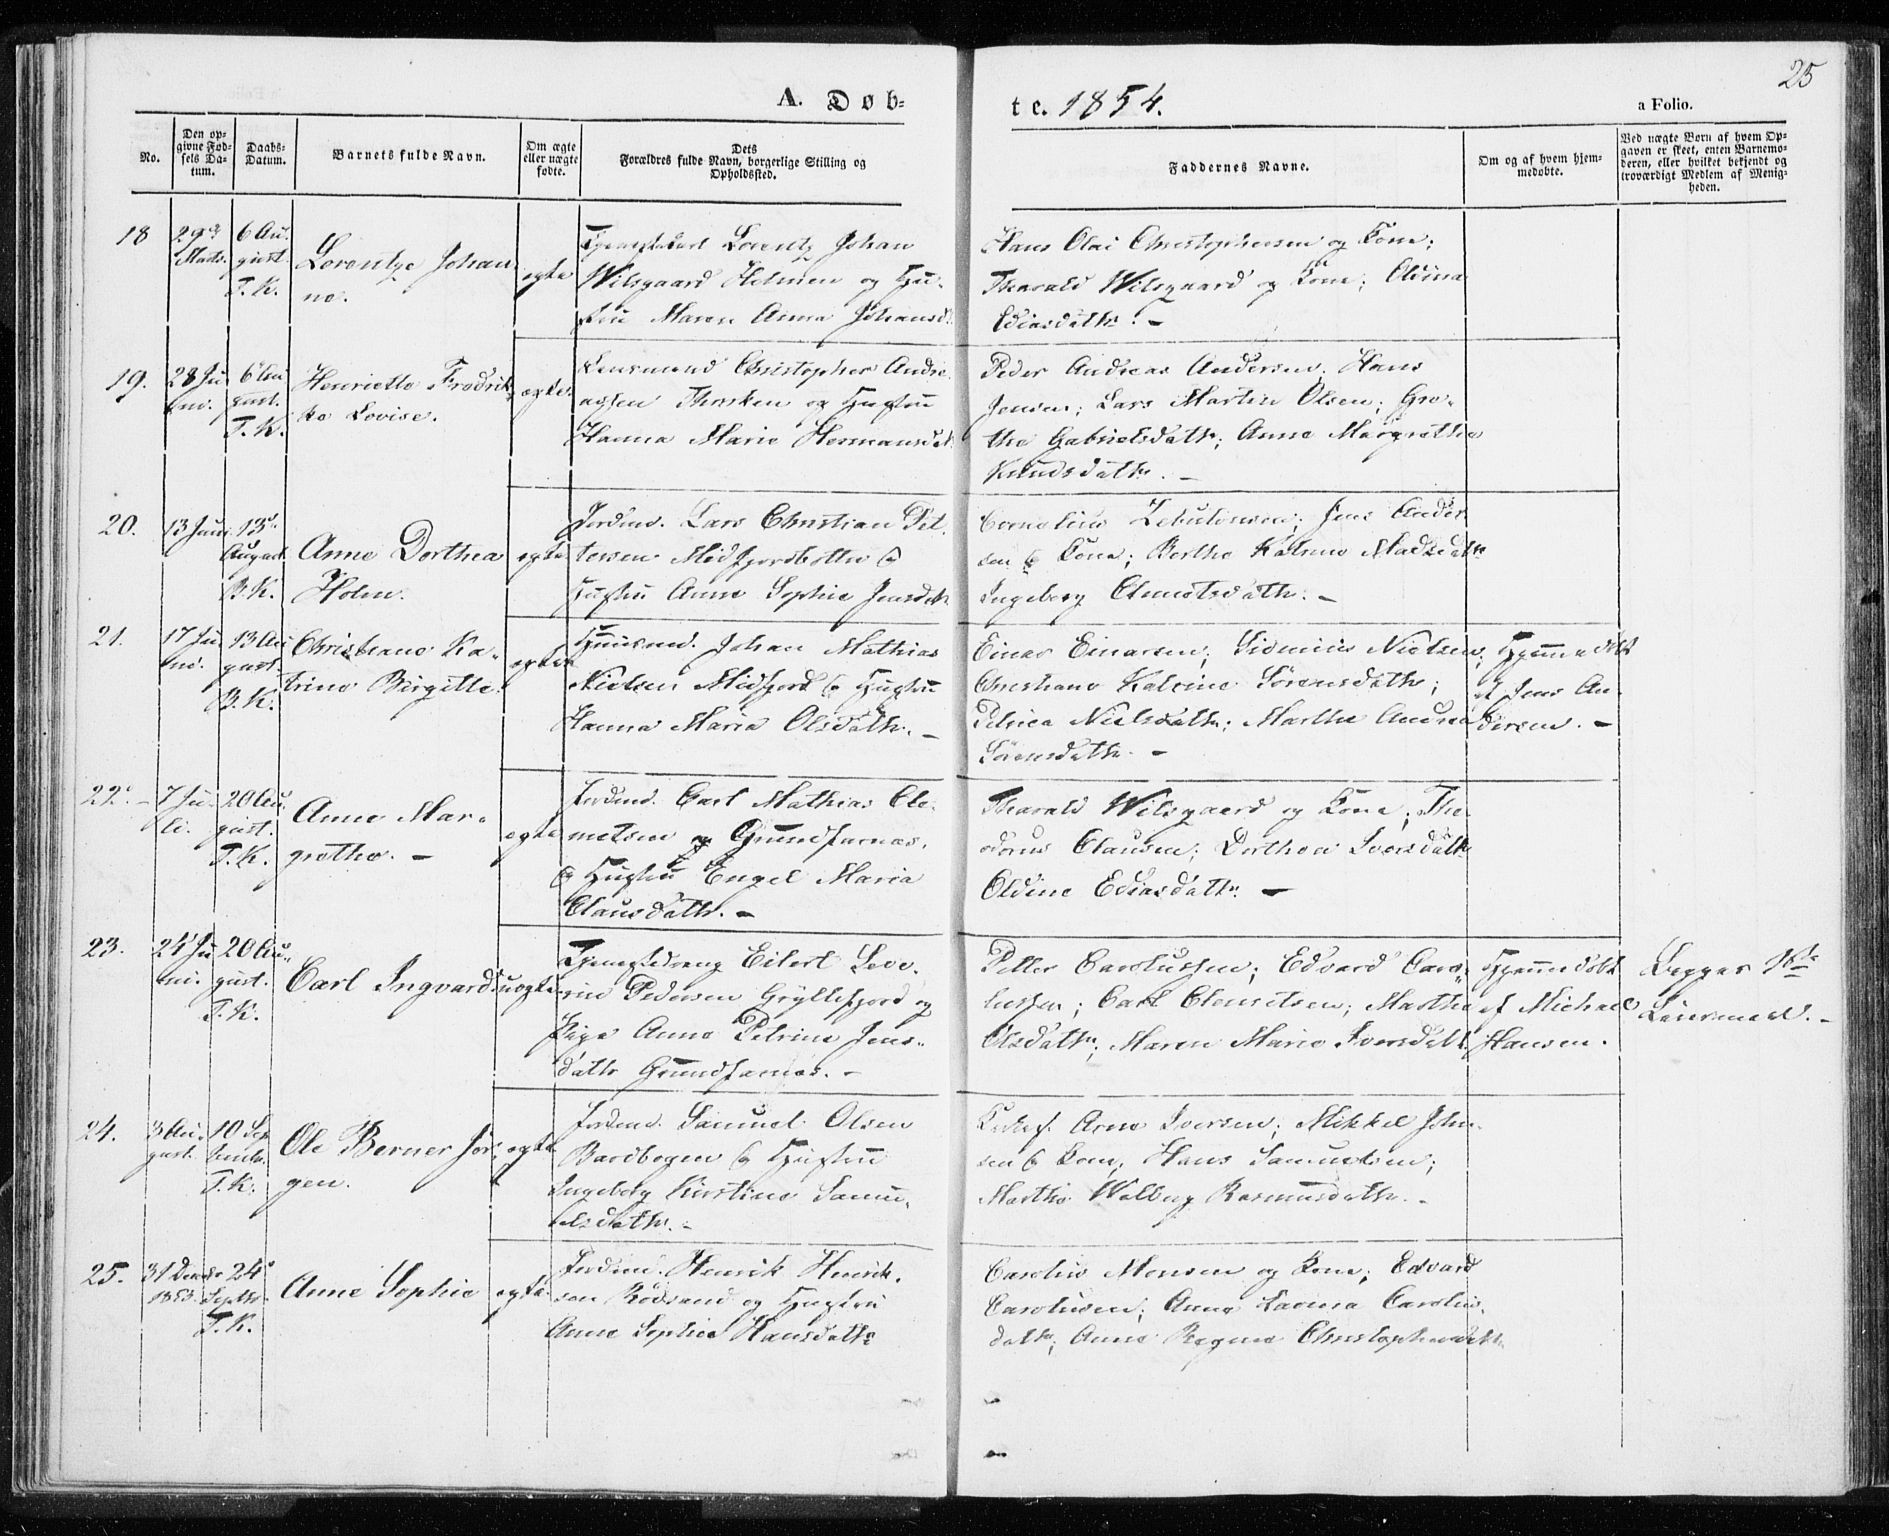 25
A. Døb=
te. 1854.
a Folio.
No.
Den op=
givne Fød=
sels Da=
tum.
Daabs=
Datum.
Barnets fulde Navn.
Om ægte
eller uægte
fødte.
Dets
Forældres fulde Navn, borgerlige Stilling og
Opholdssted.
Faddernes Navne.
Om og af hvem hjem=
medøbte.
Ved uægte Børn af hvem Op=
gaven er skeet, enten Barnemo=
deren, eller hvilket bekjendt og
troværdigt Medlem af Menig=
heden.
18
29de
Marts.
6 Au-
gust.
T. K.
Lorentze Johan
ne.
egte
Lorentz Johan
Wilsgaard Helmen og Hu-
stru Maren Anna Johansd.
Hans Olai Christophersen og Kone;
Tharald Wilsgaard og Kone; Oldina
Ediasdattr. –
19.
28 Ju
ni.
6 Au
gust.
T. K.
Henriette Fredrik
ke Lovise.
egte
Lensmand Christopher Andre
assen Thesken og Hustru
Hanna Marie Hermansdatr
Peder Andreas Andersen, Hans
Jensen; Lars Martin Olsen; Gre-
the Gabrielsdattr; Anne Margrethe
Knudsdattr. –
20.
13 Juni
13de
August
B. K.
Anne Dorthea
Holm.
egte
Jordmd. Lars Christian Pet
tersen Midfjordbotten &
Hustru Anne Sophie Jensdatr
Cornelius Zebulonsen; Jens Ander
sen & Kone; Berthe Katrine Madsdattr
Ingeborg Clemetsdattr. –
21.
17 Ju
ni.
13 Au
gust.
B. K.
Christiane Ka-
trine Birgitte.
egte
Huusmd. Johan Mathias
Nielsen Midfjord & Hustru
Hanna Maria Olsdattr. –
Einar Einarsen; Sidenius Nielsen;
Christiane Katrine Sørensdattr;
Petrica Nielsdattr; Marthe Andrea
Sørensdattr. –
Hjemmedøbt
af Jens An-
dersen. –
22.
7 Ju-
li.
20 Au.
gust.
T. K.
Anne Mar-
grethe. –
egte
Jordmd. Carl Mathias Cle-
metsen og Grundfarnæs.
& Hustru Engel Maria
Clausdattr. –
Tharald Wilsgaard og Kone; The-
odorus Clausen; Dorthea Iversdattr
Oldine Ediasdattr. –
23.
24 Ju
ni.
20 Au-
gust.
T. K.
Carl Ingvard
uegte
Tjenestedreng Eilert Seve-
rin Pedersen Gryllefjord og
Pige Anne Petrine Jens-
dattr Grundfarnæs. –
Petter Carolussen; Edvard Caro-
lussen; Carl Clemetsen; Marthe
Olsdattr; Maren Marie Iversdattr.
Hjemmedøbt
af Michael
Hansen.
Begges 1ste
Leiermaal. –
24.
3 Au-
gust.
10 Sep
tember.
T. K.
Ole Berner Jør-
gen.
egte
Jordmd. Samuel Olsen
Bardbogen & Hustru
Ingeborg Kirstine Samu-
elsdattr. –
Arne Iversen; Mikkel John-
sen & Kone, Hans Samuelsen;
Marthe Wolborg Rasmusdattr. –
25.
31 Decbr
1853.
24de
Septbr.
T. K.
Anne Sophie
egte
Jordmd. Henrik Henrik-
sen Rødsand og Hustru
Anne Sophie Hansdattr
Carolus Monsen og Kone; Edvard
Carolusen; Anne Lavina Carolus-
dattr; Anne Regine Christophersdattr